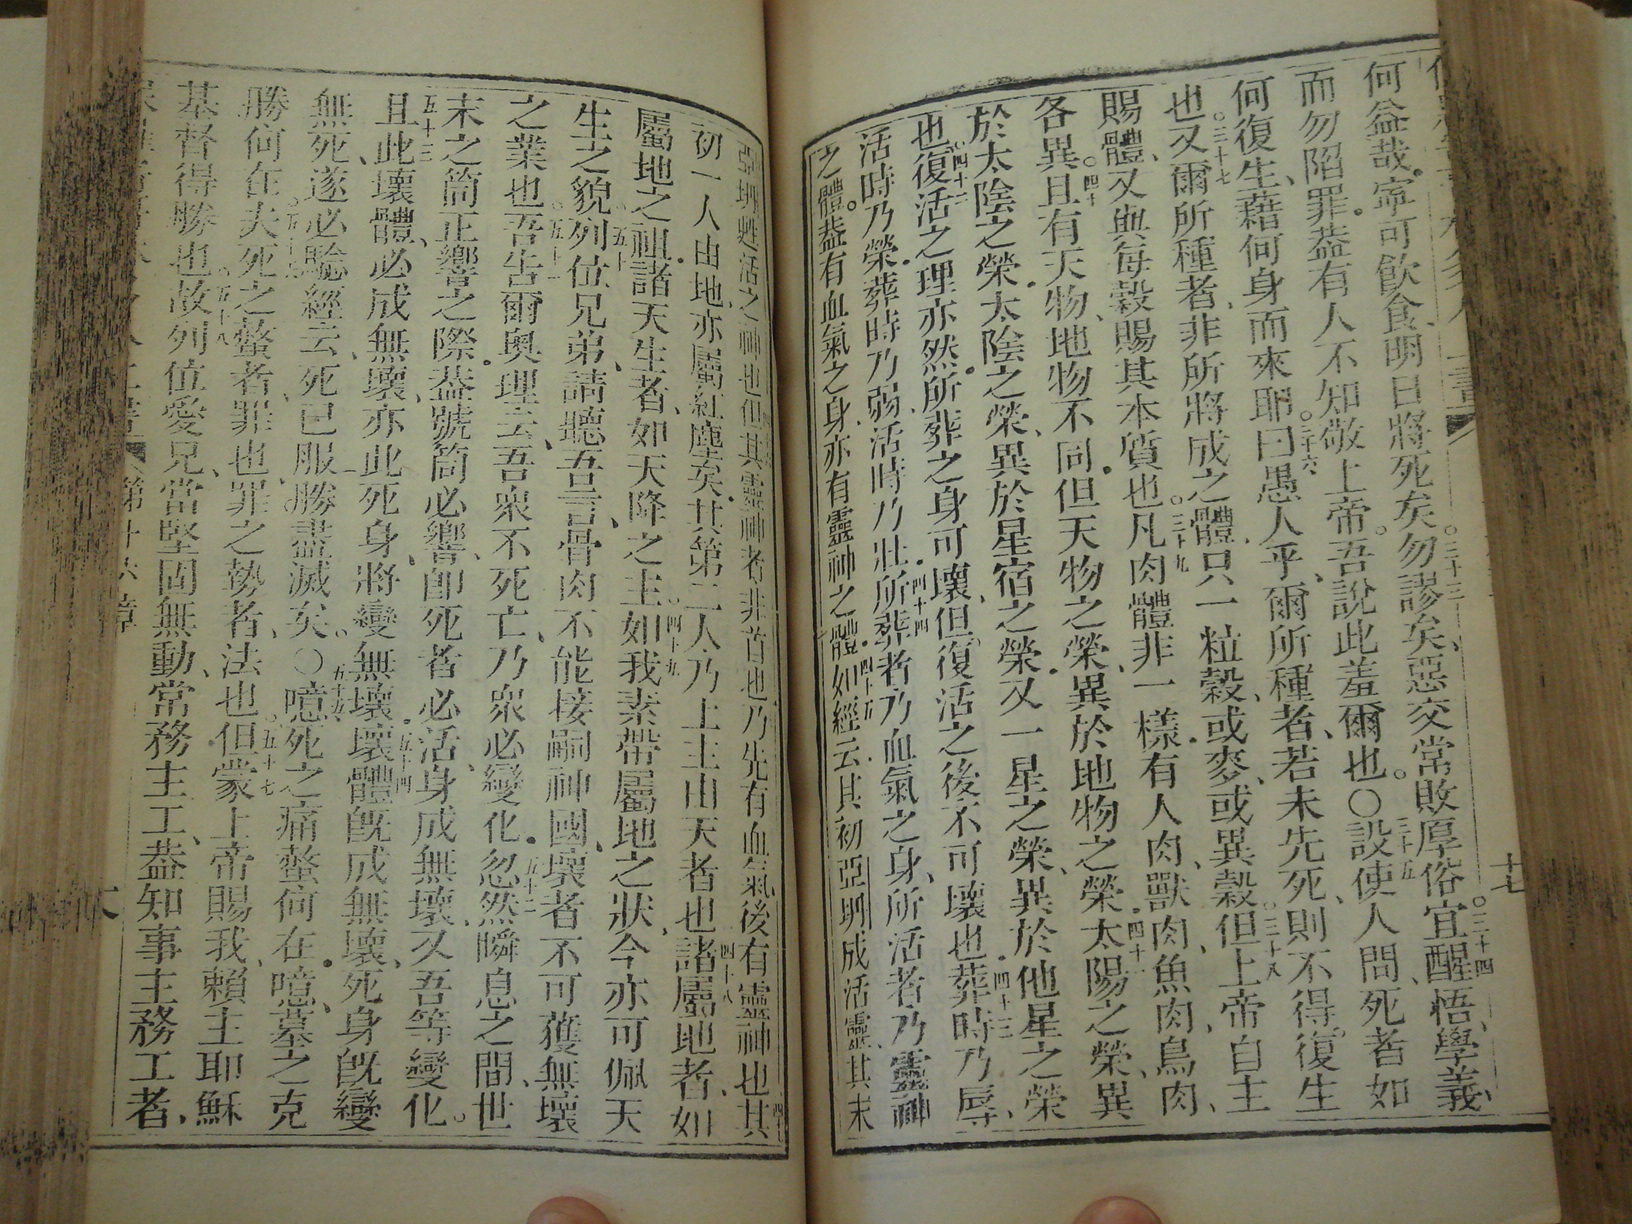 何益哉寧可飲食明日將死矣勿謬矣惡交常敗厚俗宜醒悟學義
而勿陷罪蓋有人不知敬上帝吾說此羞爾也〇設使人問死者如
何復生藉何身而來耶曰愚人乎爾所種者若未先死則不得復生
也又爾所種者非所將成之體只一粒穀或麥或異穀但上帝自主
賜體又與每穀賜其本質也凡肉體非一樣有人肉獸肉魚肉鳥肉
各異且有天物地物不同但天物之榮異於地物之榮太陽之榮異
於太陰之榮太陰之榮異於星宿之榮又一星之榮異於他星之榮
也復活之理亦然所葬之身可壞但復活之後不可壞也葬時乃辱
活時乃榮葬時乃弱活時乃壯所葬者乃血氣之身所活者乃靈神
之體蓋有血氣之身亦有靈神之體如經云其初亞坍成活靈其末
亞坍甦活之神也但其靈神者非首也乃先有血氣後有靈神也其
初一人由地亦屬紅塵矣其第二人乃上主由天者也諸屬地者如
屬地之祖諸天生者如天降之主如我素帶屬地之狀今亦可佩天
生之貌列位兄弟請聽吾言骨肉不能接嗣神國壞者不可獲無壞
之業也吾告爾奧理云吾眾不死亡乃眾必變化忽然瞬息之間世
末之筒正響之際蓋號筒必響即死者必活身成無壞又吾等變化
且此壞體必成無壞亦此死身將變無壞壞體既成無壞死身既變
無死遂必驗經云死已服勝盡滅矣〇噫死之痛螫何在噫墓之克
勝何在夫死之螫者罪也罪之勢者法也但蒙上帝賜我賴主耶穌
基督得勝也故列位愛兄當堅固無動常務主工蓋知事主務工者